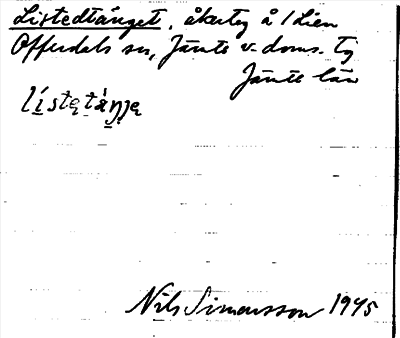 Listedtånget, åkerteg å 1 Lien
Offerdals sn, Jämts v. doms. tg
Jämte län
Nils Simonsson 1945